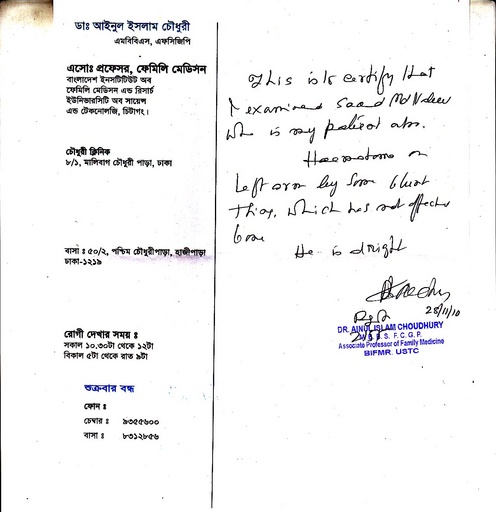 ডাঃ আইনুল ইসলাম চৌধুরী
এমবিবিএস, এফসিজিপি
এসোঃ প্রফেসর, ফেমিলি মেডিসন
বাংলাদেশ ইনসটিটিউট অব
ফেমিলি মেডিসন এন্ড রিসার্চ
ইউনিভারসিটি অব সায়েন্স
এন্ড টেকনোলজি, চিটাগং।
চৌধুরী ক্লিনিক
৮/১, মালিবাগ চৌধুরী পাড়া, ঢাকা
বাসা : ৫০/২, পশ্চিম চৌধুরীপাড়া, হাজীপাড়া
ঢাকা-১২১৯
রোগী দেখার সময় :
সকাল ১০.৩০টা থেকে ১২টা
বিকাল ৫টা থেকে রাত ৯টা
শুক্রবার বন্ধ
ফোন :
চেম্বার : ৯৩৫৫৬০০
বাসা : ৮৩১২৮৫৬
This is to certify that
I examined Saad Md
who is my patient
Haematoma on
Left arm by some blunt
thing, which has not
bone
He is alright
28/11/10
DR. AINUL ISLAM CHOUDHURY
M. B. B. S. F. C. G. P.
Associate Professor of Family Medicine
BIFMR. USTC